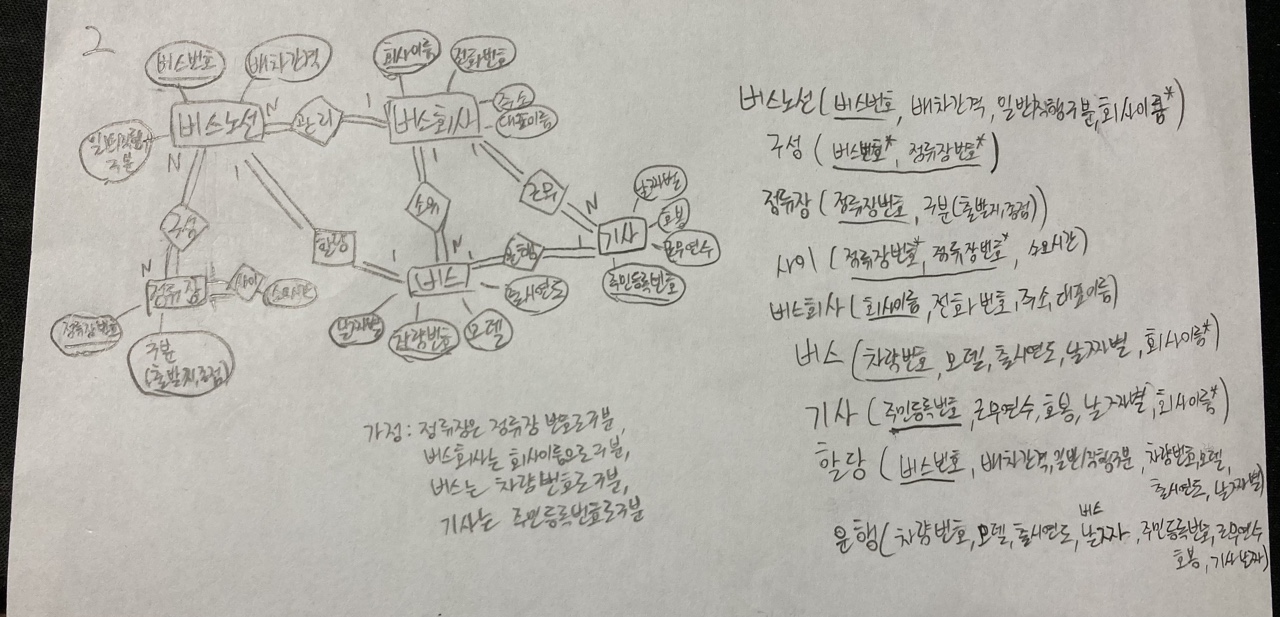 2
버스번호
배차간격
회사이름
전화번호
버스노선
N
관리
1
버스회사
주소
대표이름
일반/직행
구분
N
1
1
1
구성
소유
근무
날짜별
호봉
근무연수
N
기사
할당
N
정류장
사이
소요시간
1
N
버스
1
운행
1
주민등록번호
출시연도
정류장번호
구분
(출발지,종점)
날짜별
차량번호
모델
가정: 정류장은 정류장 번호로 구분,
버스회사는 회사이름으로 구분,
버스는 차량 번호로 구분,
기사는 주민등록번호로 구분
버스노선(버스번호, 배차간격, 일반/직행구분, 회사이름*)
구성 (버스번호*, 정류장번호*)
정류장 (정류장번호, 구분(출발지,종점))
사이 (정류장번호*, 정류장번호*, 소요시간)
버스회사 (회사이름, 전화번호, 주소, 대표이름)
버스 (차량번호, 모델, 출시연도, 날짜별, 회사이름*)
기사 (주민등록번호, 근무연수, 호봉, 날짜별, 회사이름*)
할당 (버스번호, 배차간격, 일반/직행구분, 차량번호, 모델,
출시연도, 날짜별)
버스
운행(차량번호, 모델, 출시연도, 날짜, 주민등록번호, 근무연수
호봉, 기사날짜)